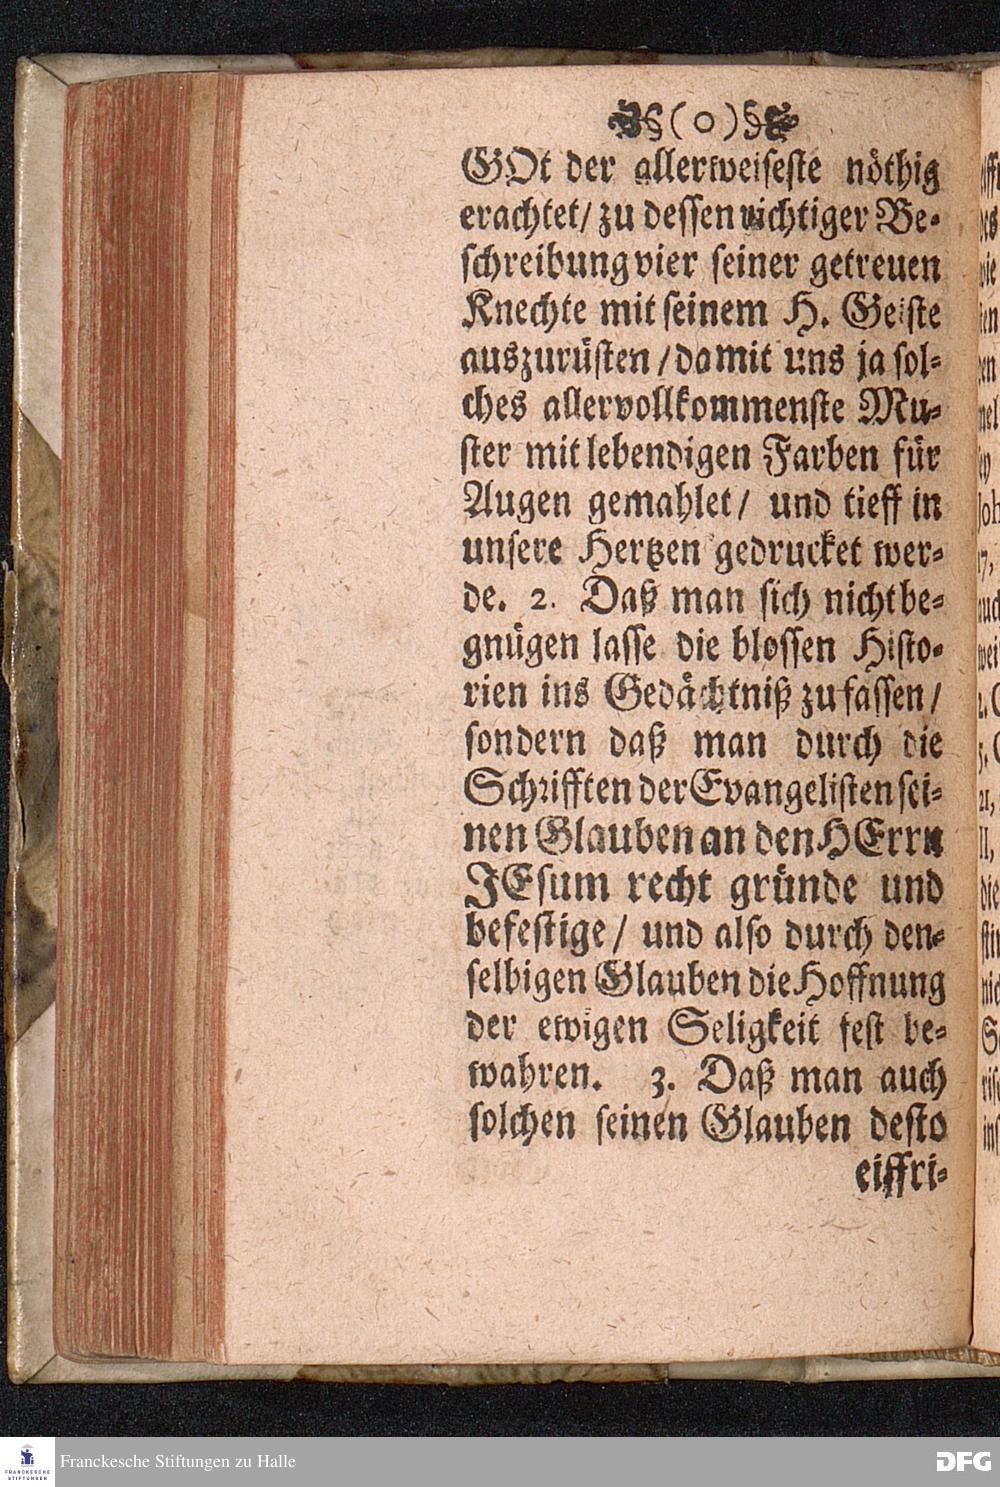 §(o)§
GOt der allerweiseste nöthig
erachtet/ zu dessen richtiger Be-
schreibung vier seiner getreuen
Knechte mit seinem H. Geiste
auszurüsten/ damit uns ja sol-
ches allervollkommenste Mu-
ster mit lebendigen Farben für
Augen gemahlet/ und tieff in
unsere Hertzen gedrucket wer-
de. 2. Daß man sich nicht be-
gnügen lasse die blossen Histo-
rien ins Gedächtniß zu fassen/
sondern daß man durch die
Schrifften der Evangelisten sei-
nen Glauben an den HErrn
JEsum recht gründe und
befestige/ und also durch den-
selbigen Glauben die Hoffnung
der ewigen Seligkeit fest be-
wahren. 3. Daß man auch
solchen seinen Glauben desto
eiffri-
Franckesche Stiftungen zu Halle
FRANCKESCHE
STIFTUNGEN
DFG